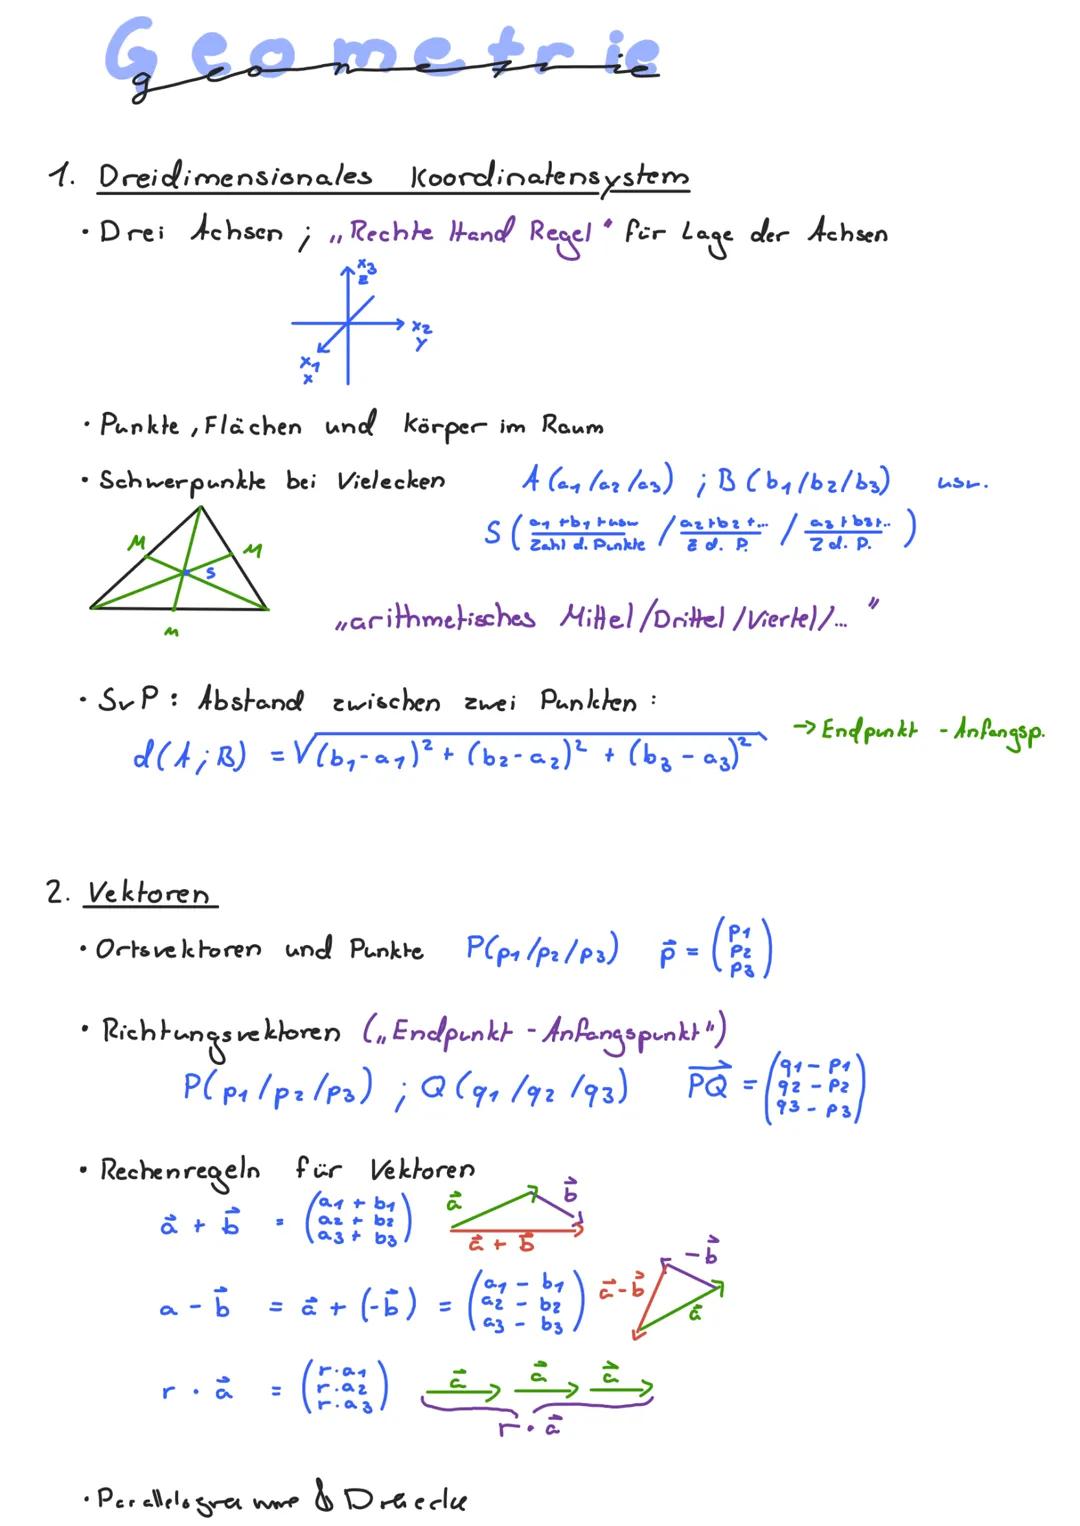 Geometrie
geometrie
1. Dreidimensionales Koordinatensystem
· Drei Achsen ; „Rechte Hand Regel" für Lage der Achsen
x3
z
x2
y
x1
x
· Punkte, Flächen und Körper im Raum
· Schwerpunkte bei Vielecken A(a1/a2/a3) ; B(b1/b2/b3) usw.
S( a1+b1+usw / Zahl d. Punkte / a2+b2+... / Z d. P. / a3+b3+.. / Z d. P. )
M M
S
M
„arithmetisches Mittel/Drittel/Viertel/..."
· SvP: Abstand zwischen zwei Punkten:
→ Endpunkt - Anfangsp.
d(A;B) = √(b1-a1)² + (b2-a2)² + (b3-a3)²
2. Vektoren
· Ortsvektoren und Punkte P(p1/p2/p3) p⃗ = (p1 p2 p3)
· Richtungsvektoren („Endpunkt - Anfangspunkt")
P(p1/p2/p3) ; Q(q1/q2/q3) PQ⃗ = (q1-p1 q2-p2 q3-p3)
· Rechenregeln für Vektoren
a⃗ + b⃗ = (a1+b1 a2+b2 a3+b3) a⃗ b⃗ a⃗ + b⃗
a - b⃗ = a⃗ + (-b⃗) = (a1-b1 a2-b2 a3-b3) a⃗-b⃗ -b⃗ a⃗
r · a⃗ = (r·a1 r·a2 r·a3) a⃗ a⃗ a⃗
r · a⃗
· Parallelogramme & Dreiecke